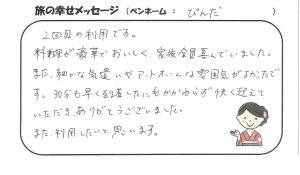 旅の幸せメッセージ (ペンネーム : ぴんだ )
2回目の利用です。
料理が豪華でおいしく、家族全員喜んでいました。
また、細かな気遣いやアットホームな雰囲気がよかったで
す。30分も早く到着したにもかかわらず快く迎えて
いただき、ありがとうございました。
また、利用したいと思います。